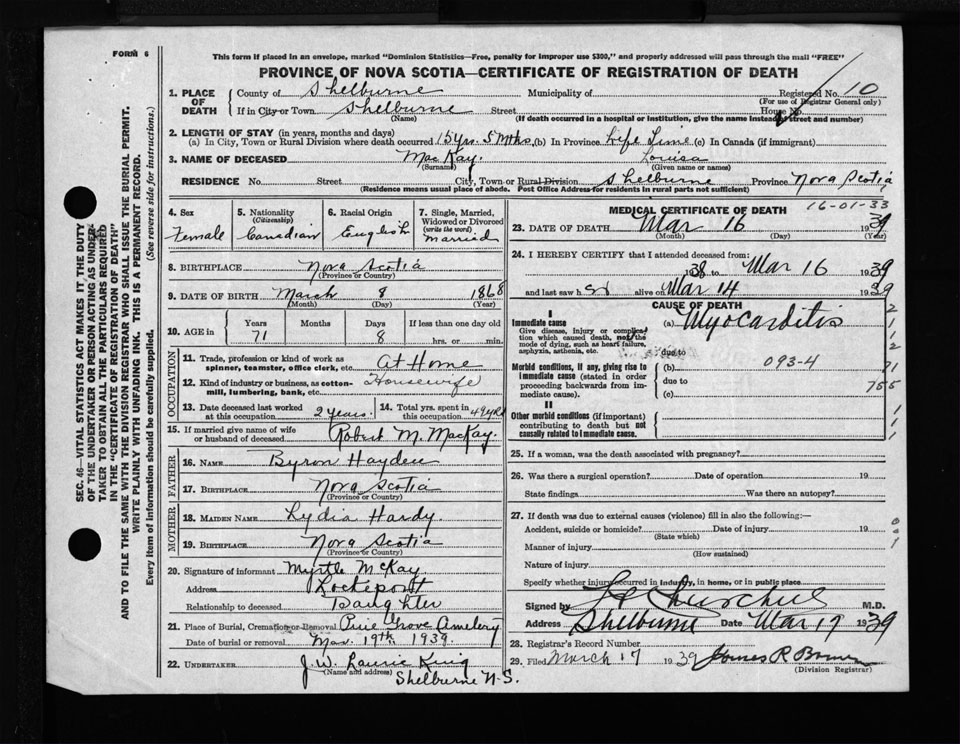 FORM 6
This form if placed in an envelope, marked "Dominion Statistics—Free, penalty for improper use $300," and properly addressed will pass through the mail "FREE"
PROVINCE OF NOVA SCOTIA—CERTIFICATE OF REGISTRATION OF DEATH
1. PLACE OF DEATH County of Shelburne Municipality of Registered No. 10
(For use of Registrar General only)
If in City or Town Shelburne Street House No.
(Name) (If death occurred in a hospital or institution, give the name instead of street and number)
2. LENGTH OF STAY (in years, months and days)
(a) In City, Town or Rural Division where death occurred 15 yrs. 5 Mths. (b) In Province Life Time (c) In Canada (if immigrant)
3. NAME OF DECEASED MacKay. Louisa
(Surname) (Given name or names)
RESIDENCE No. Street City, Town or Rural Division Shelburne Province Nova Scotia
(Residence means usual place of abode. Post Office Address for residents in rural parts not sufficient)
4. Sex Female
5. Nationality (Citizenship) Canadian
6. Racial Origin English
7. Single, Married, Widowed or Divorced (write the word) Married
8. BIRTHPLACE Nova Scotia
(Province or Country)
9. DATE OF BIRTH March 8 1868
(Month) (Day) (Year)
10. AGE in Years Months Days If less than one day old
71 8 hrs. or min.
OCCUPATION
11. Trade, profession or kind of work as spinner, teamster, office clerk, etc. At Home
12. Kind of industry or business, as cotton-mill, lumbering, bank, etc. Housewife
13. Date deceased last worked at this occupation 2 years.
14. Total yrs. spent in this occupation 49 yrs
15. If married give name of wife or husband of deceased Robert M. MacKay.
FATHER
16. NAME Byron Hayden
17. BIRTHPLACE Nova Scotia
(Province or Country)
MOTHER
18. MAIDEN NAME Lydia Hardy.
19. BIRTHPLACE Nova Scotia
(Province or Country)
20. Signature of informant Myrtle McKay
Address Lockeport
Relationship to deceased Daughter
21. Place of Burial, Cremation or Removal Grove Cemetery
Date of burial or removal Mar. 19th. 1939.
22. UNDERTAKER J. W. Laurie King
(Name and address) Shelburne N.S.
MEDICAL CERTIFICATE OF DEATH 16-01-33
23. DATE OF DEATH Mar 16 1939
(Month) (Day) (Year)
24. I HEREBY CERTIFY that I attended deceased from:
1938 to Mar 16 1939
and last saw h er alive on Mar 14 1939
CAUSE OF DEATH
I
Immediate cause (a) Myocarditis
Give disease, injury or complication which caused death, not the mode of dying, such as heart failure, asphyxia, asthenia, etc.
due to
Morbid conditions, if any, giving rise to immediate cause (stated in order proceeding backwards from immediate cause). (b) 093-4
due to
(c)
II
Other morbid conditions (if important) contributing to death but not causally related to immediate cause.
25. If a woman, was the death associated with pregnancy?
26. Was there a surgical operation? Date of operation 19
State findings Was there an autopsy?
27. If death was due to external causes (violence) fill in also the following:—
Accident, suicide or homicide? Date of injury 19
(State which)
Manner of injury
(How sustained)
Nature of injury
Specify whether injury occurred in industry, in home, or in public place
Signed by Churchill M.D.
Address Shelburne Date Mar 17 1939
28. Registrar's Record Number
29. Filed March 17 1939 James R Bower
(Division Registrar)
SEC. 46—VITAL STATISTICS ACT MAKES IT THE DUTY
OF THE UNDERTAKER OR PERSON ACTING AS UNDER-
TAKER TO OBTAIN ALL THE PARTICULARS REQUIRED
IN THE "CERTIFICATE OF REGISTRATION OF DEATH"
AND TO FILE THE SAME WITH THE DIVISION REGISTRAR WHO SHALL ISSUE THE BURIAL PERMIT.
WRITE PLAINLY WITH UNFADING INK. THIS IS A PERMANENT RECORD.
Every item of information should be carefully supplied. (See reverse side for instructions.)